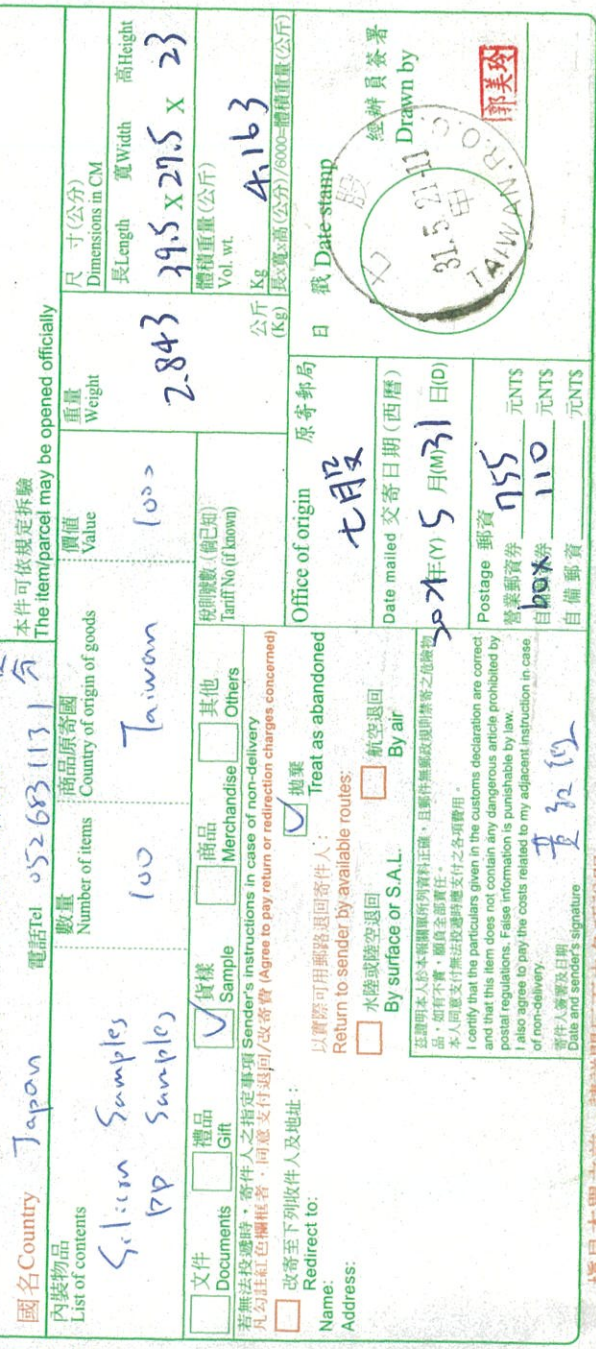 國名Country Japan 電話Tel 0526831131 分
本件可依規定拆驗
The item/parcel may be opened officially
內裝物品
List of contents
Silicon Samples
PP Samples
數量
Number of items
100
商品原寄國
Country of origin of goods
Taiwan
價值
Value
1000
重量
Weight
2.843
公斤
(Kg)
尺 寸(公分)
Dimensions in CM
長Length 寬Width 高Height
39.5 x 27.5 x 23
體積重量(公斤)
Vol. wt.
Kg 4.163
長x寬x高(公分)/6000=體積重量(公斤)
文件
Documents
禮品
Gift
貨樣
Sample
商品
Merchandise
其他
Others
稅則號數(倘已知)
Tariff No (if known)
若無法投遞時,寄件人之指定事項 Sender's instructions in case of non-delivery
凡勾註紅色欄框者,同意支付退回/改寄費 (Agree to pay return or redirection charges concerned)
改寄至下列收件人及地址:
Redirect to:
Name:
Address:
以實際可用郵路退回寄件人:
Return to sender by available routes:
水陸或陸空退回
By surface or S.A.L.
拋棄
Treat as abandoned
航空退回
By air
茲證明本人於本報關單所列資料正確,且郵件無郵政規則禁寄之危險物
品,如有不實,願負全部責任。
本人同意支付無法投遞時應支付之各項費用。
I certify that the particulars given in the customs declaration are correct
and that this item does not contain any dangerous article prohibited by
postal regulations. False information is punishable by law.
I also agree to pay the costs related to my adjacent instruction in case
of non-delivery.
寄件人簽署及日期
Date and sender's signature
Office of origin 原寄郵局
七股
Date mailed 交寄日期(西曆)
2021年(Y) 5 月(M) 31 日(D)
Postage 郵資
營業郵資券 755 元NT$
box 110 元NT$
自備郵資 元NT$
日 戳 Date stamp
經辦員簽署
Drawn by
七 股
31.5.21-11
甲
TAIWAN.R.O.C.
郭美玲